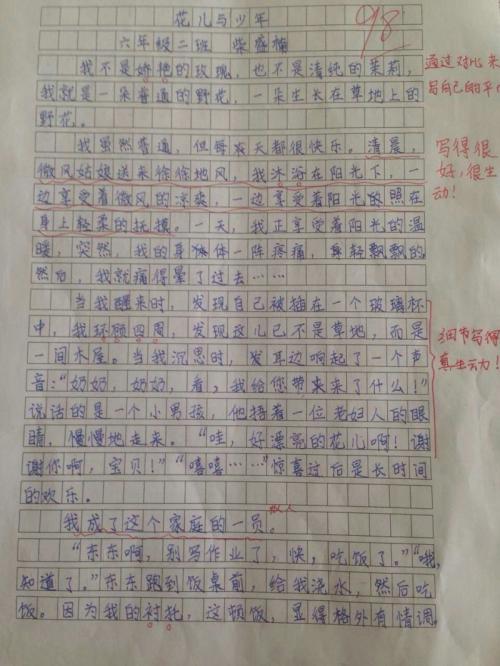 花儿与少年
98
六年级二班 柴睿楠
我不是娇艳的玫瑰，也不是清纯的茉莉，
我就是一朵普通的野花，一朵生长在草地上的
野花。
通过对比来
写自己的平
我虽然普通，但每天都很快乐。清晨，
微风姑娘送来徐徐地风，我沐浴在阳光下，一
边享受着微风的凉爽，一边享受着阳光的照在
身上轻柔的抚摸。一天，我正享受着阳光的温
暖，突然，我的身体一阵疼痛，身轻飘飘的
然后，我就痛得晕了过去……
写得很
好，很生
动！
当我醒来时，发现自己被插在一个玻璃杯
中，我环顾四周，发现这儿已不是草地，而是
一间木屋。当我沉思时，发耳边响起了一个声
音：“奶奶，奶奶，看，我给你带来来了什么！”
说话的是一个小男孩，他捂着一位老妇人的眼
睛，慢慢地走来。“哇，好漂亮的花儿啊！谢
谢你啊，宝贝！”“嘻嘻……”惊喜过后是长时间
的欢乐。
细节写得
真生动！
我成了这个家庭的一员。
拟人
“东东啊，别写作业了，快，吃饭了。”“哦，
知道了。”东东跑到饭桌前，给我浇水，然后吃
饭。因为我的衬托，这顿饭，显得格外有情调。